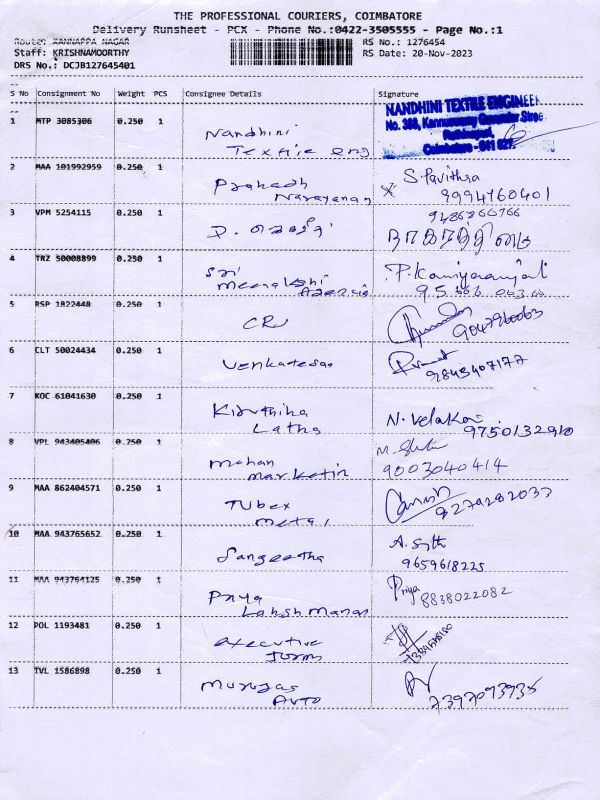 THE PROFESSIONAL COURIERS, COIMBATORE
Delivery Runsheet - PCX - Phone No.:0422-3505555 - Page No.:1
Route: KANNAPPA NAGAR
RS No.: 1276454
Staff: KRISHNAMOORTHY
RS Date: 20-Nov-2023
DRS No.: DCJB127645401
S No Consignment No Weight PCS Consignee Details Signature
1 MTP 3085306 0.250 1 Nandhini
Textile eng
NANDHINI TEXTILE ENGINEER
No. 388, Kannuswamy Gounder Street
Coimbatore - 641 027.
2 MAA 101992959 0.250 1 Prakash
Narayanan
S. Pavithra
9994760401
3 VPM 5254115 0.250 1
4 TRZ 50008899 0.250 1 Sri
Meenakshi
Agencis
5 RSP 1822448 0.250 1 CRI
9047960063
6 CLT 50024434 0.250 1 Venkatesan
9843407177
7 KOC 61041630 0.250 1 Kiruthika
Latha
N. Velakoi
9750132910
8 VPL 943405406 0.250 1 Mohan
Marketin
9003040414
9 MAA 862404571 0.250 1 Tubex
Metal
10 MAA 943765652 0.250 1 Sangeetha
9659618225
11 MAA 943764125 0.250 1 Priya
Lakshmanan
Priya
8838022082
12 POL 1193481 0.250 1 executive
13 TVL 1586898 0.250 1 Murugas
Auto
7397093935